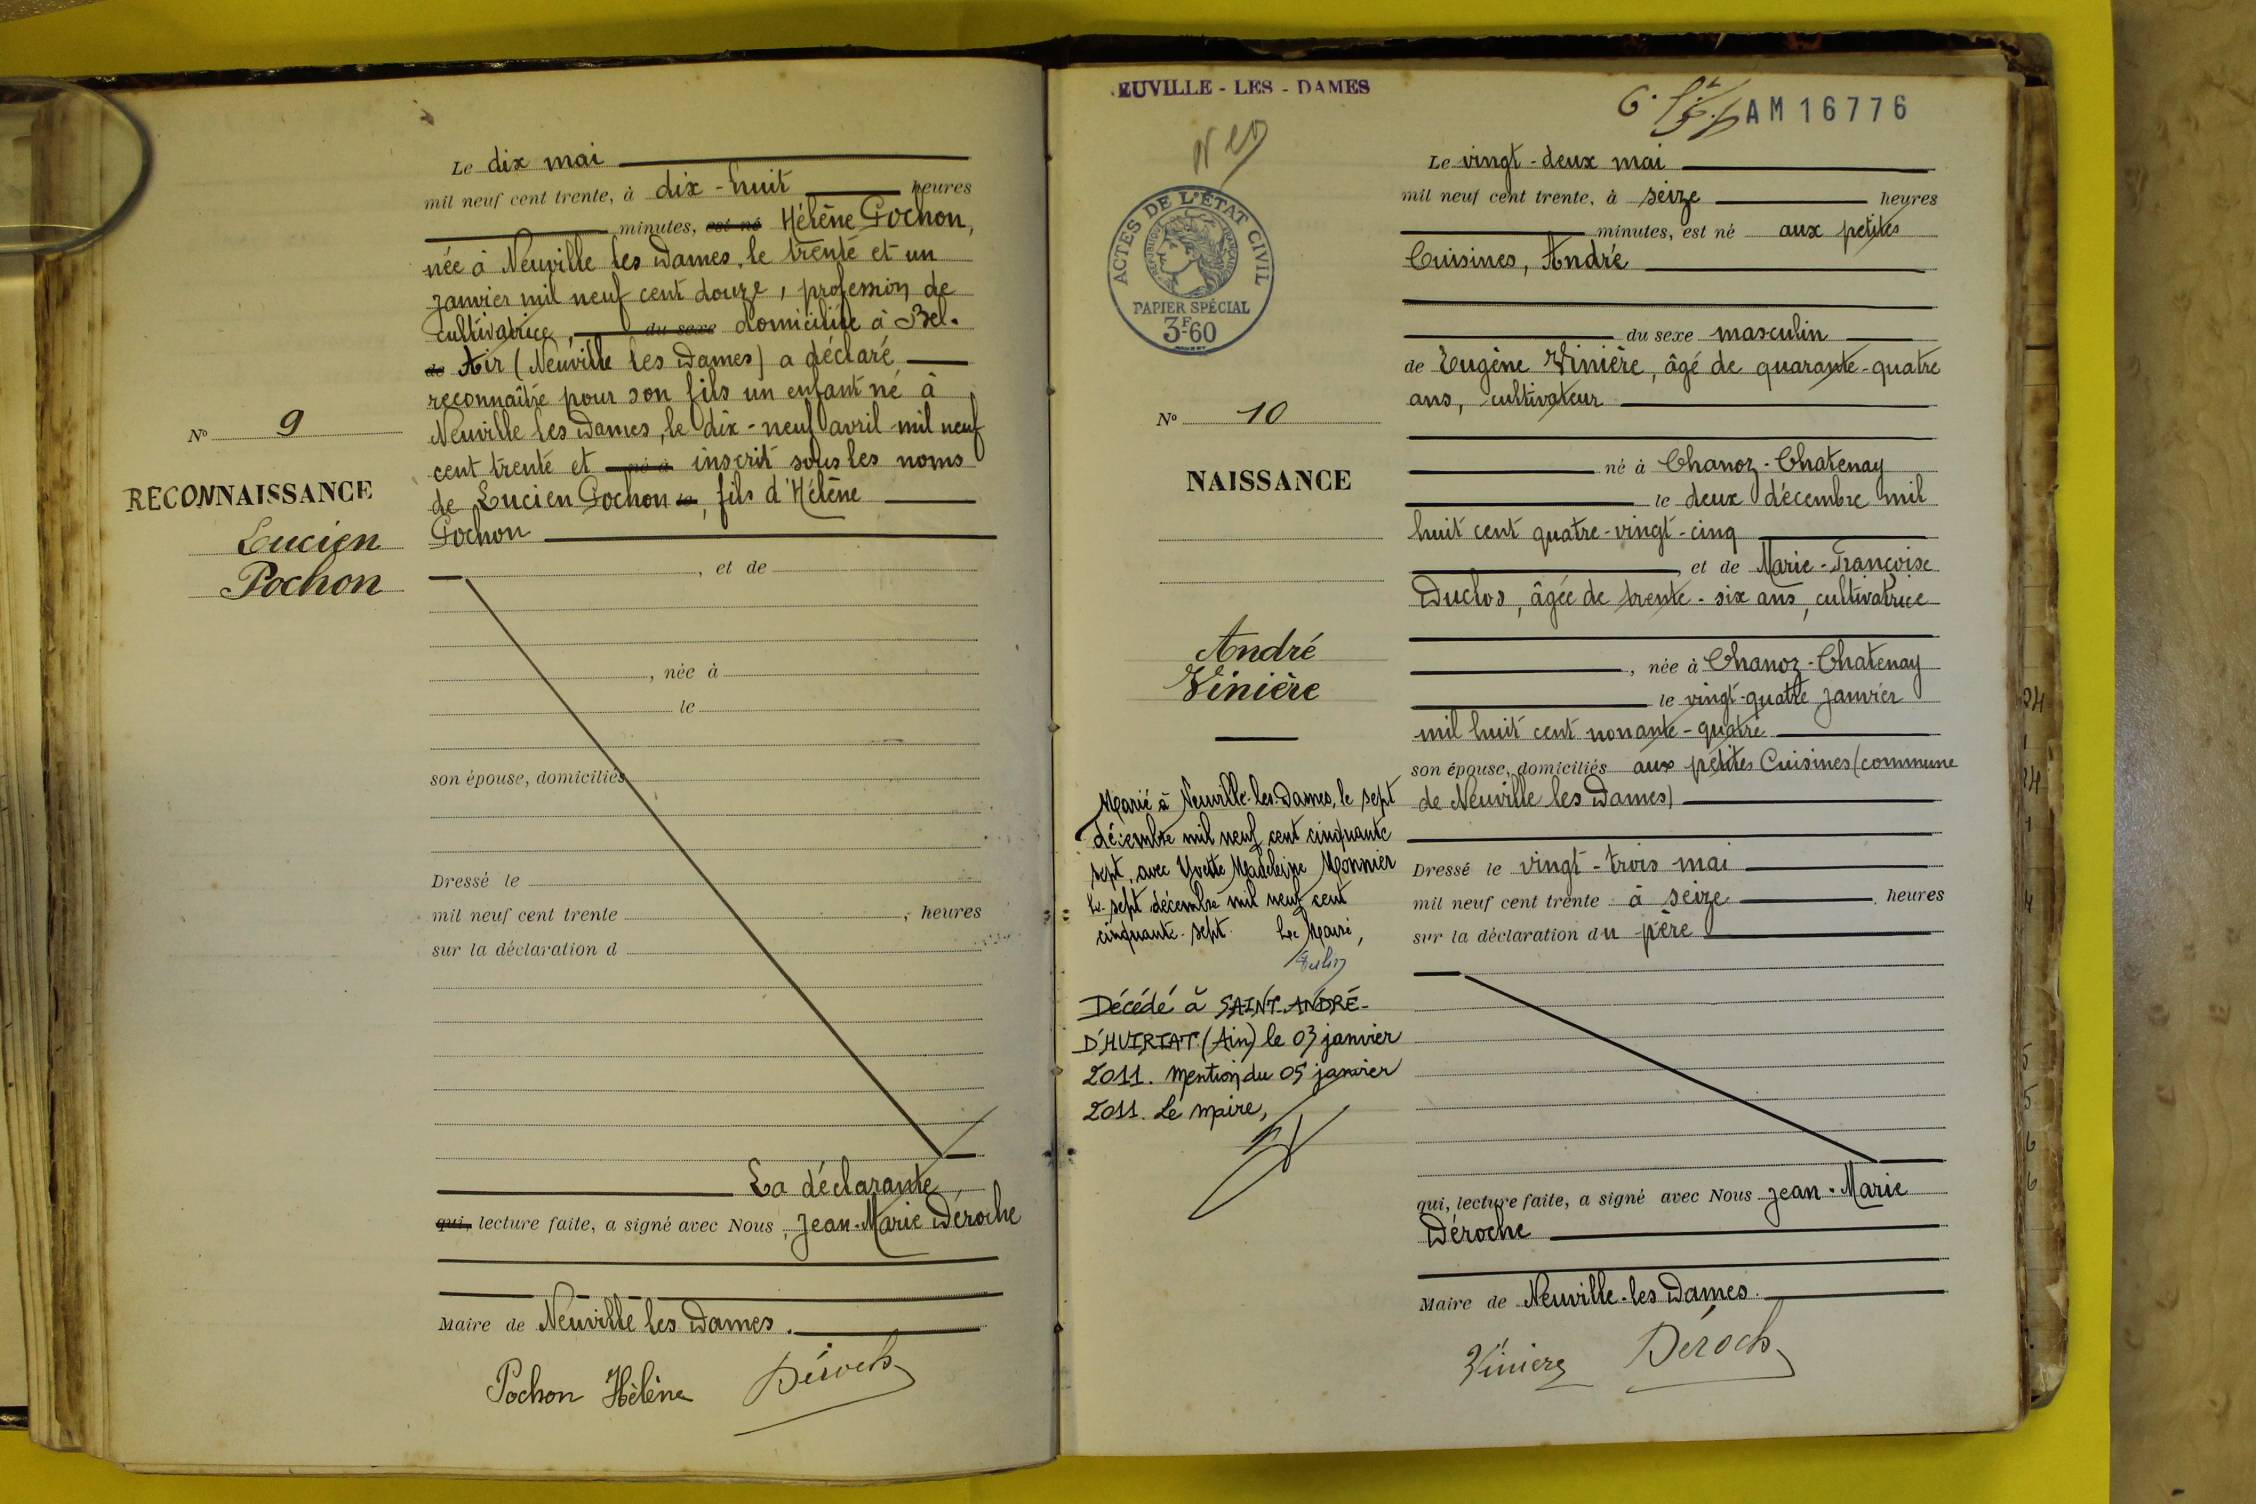 Le dix mai
mil neuf cent trente, à dix-huit heures
minutes, est né Hélène Pochon,
née à Neuville les Dames, le trente et un
janvier mil neuf cent douze, profession de
cultivatrice, du sexe domiciliée à Bel-
de Air (Neuville les Dames) a déclaré
reconnaître pour son fils un enfant né à
Neuville les Dames, le dix-neuf avril mil neuf
cent trente et né à inscrit sous les noms
de Lucien Pochon le, fils d'Hélène
Pochon
, et de
, née à
le
son épouse, domiciliés
Dressé le
mil neuf cent trente , heures
sur la déclaration d
La déclarante
qui, lecture faite, a signé avec Nous, Jean-Marie Déroche
Maire de Neuville les Dames.
Pochon Hélène Déroche
N° 9
RECONNAISSANCE
Lucien
Pochon
EUVILLE - LES - DAMES
AM 16776
ACTES DE L'ÉTAT CIVIL
RÉPUBLIQUE FRANÇAISE
PAPIER SPÉCIAL
3F-60
N° 10
NAISSANCE
André
Vinière
Marié à Neuville-les-Dames, le sept
décembre mil neuf cent cinquante
sept, avec Yvette Madeleine Monnier
Le sept décembre mil neuf cent
cinquante-sept. Le Maire,
Décédé à SAINT-ANDRÉ-
D'HUIRIAT (Ain) le 03 janvier
2011. Mention du 05 janvier
2011. Le maire,
Le vingt-deux mai
mil neuf cent trente, à seize heures
minutes, est né aux petites
Cuisines, André
du sexe masculin
de Eugène Vinière, âgé de quarante-quatre
ans, cultivateur
né à Chanoz-Chatenay
le deux décembre mil
huit cent quatre-vingt-cinq
, et de Marie-Françoise
Duclos, âgée de trente-six ans, cultivatrice
, née à Chanoz-Chatenay
le vingt-quatre janvier
mil huit cent nonante-quatre
son épouse, domiciliés aux petites Cuisines (commune
de Neuville les Dames)
Dressé le vingt-trois mai
mil neuf cent trente à seize heures
sur la déclaration du père
qui, lecture faite, a signé avec Nous Jean-Marie
Déroche
Maire de Neuville-les-Dames.
Vinière Déroche